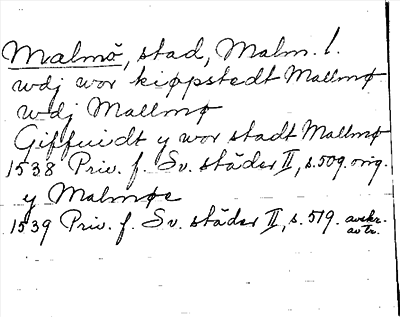 Malmö, stad, Malm. l.
wdj wor kiøpstedt Mallmø
wdj Mallmø
Giffuidt y wor stadt Mallmø
1538 Priv. f. Sv. städer II, s. 509. orig.
y Malmøe
1539 Priv. f. Sv. städer II, s. 519. avskr. avtr.